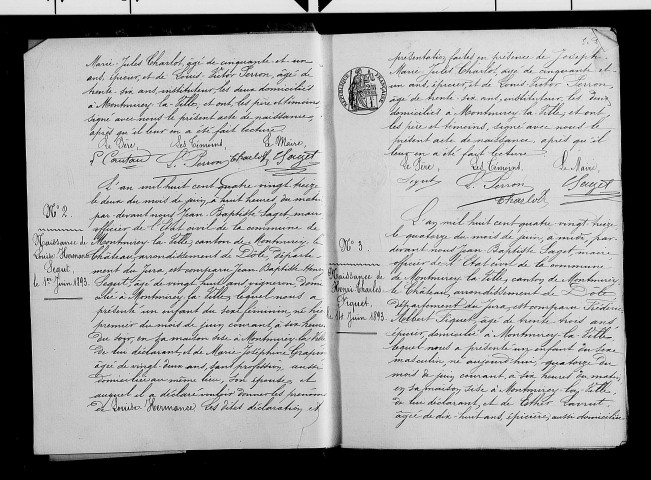 Marie Jules Charlot, âgé de cinquante et un
ans, épicier, et de Louis Victor Perron, âgé de
trente six ans, instituteur, les deux domiciliés
à Montmirey la Ville, et ont, les père et témoins
signé avec nous le présent acte de naissance,
après qu'il leur en a été fait lecture
Le Père, Les Témoins, Le Maire,
L. Perron Charlot Saget
L'an mil huit cent quatre vingt treize
le deux du mois de juin, à huit heures du matin
par devant nous Jean Baptiste Saget maire
officier de l'Etat civil de la commune de
Montmirey la Ville, canton de Montmirey le
Château, arrondissement de Dole, départe-
ment du Jura, est comparu Jean Baptiste Henri
Segut, âgé de vingt huit ans, vigneron, domi-
cilié à Montmirey la Ville, lequel nous a
présenté un enfant du sexe féminin, né hier
premier du mois de juin courant, à six heures
du soir, en sa maison sise à Montmirey la Ville
de lui déclarant, et de Marie Joséphine
âgée de vingt deux ans, sans profession, aussi
domiciliée au même lieu, son épouse, et
auquel il a déclaré vouloir donner les prénoms
de Louise Hermance. Les dites déclaration, et
N° 2.
Naissance de
Louise Hermance
Segut,
le 1er Juin 1893.
présentation faites en présence de Joseph
Marie Jules Charlot, âgé de cinquante et
un ans, épicier, et de Louis Victor Perron,
âgé de trente six ans, instituteur, les deux
domiciliés à Montmirey la Ville, et ont,
les père et témoins, signé avec nous le
présent acte de naissance, après qu'il
leur en a été fait lecture
Le Père, Les Témoins, Le Maire,
Segut L. Perron Saget
Charlot
L'an mil huit cent quatre vingt treize
le quatorze du mois de juin, à midi, par
devant nous Jean Baptiste Saget, maire
officier de l'Etat civil de la commune
de Montmirey la Ville, canton de Montmirey
le Château, arrondissement de Dole
département du Jura, est comparu Frédéric
Albert Piguet, âgé de trente trois ans
épicier, domicilié à Montmirey la Ville
lequel nous a présenté un enfant du sexe
masculin, né aujourd'hui quatorze du
mois de juin courant à six heures du matin
en sa maison, sise à Montmirey la Ville
de lui déclarant, et de Esther
âgée de dix-huit ans, épicière, aussi domiciliée
N° 3
Naissance de
Henri Charles
Piguet,
le 14 Juin 1893
RÉPUBLIQUE FRANÇAISE